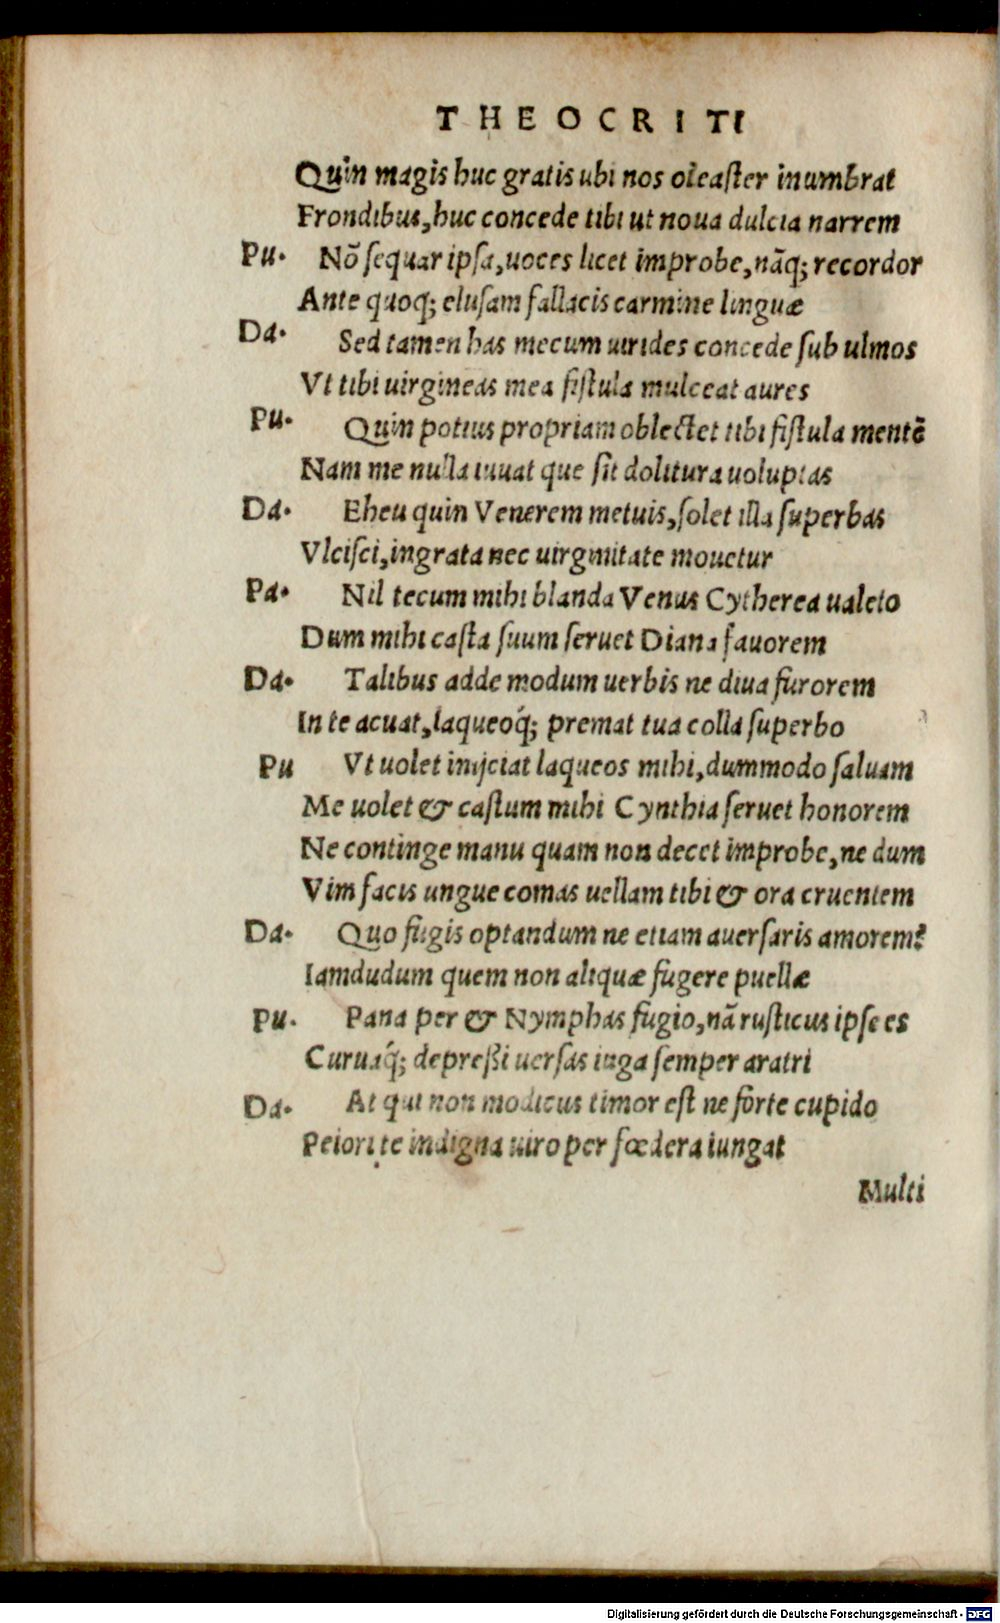 THEOCRITI
Quin magis huc gratis ubi nos oleaſter inumbrat
Frondibus, huc concede tibi ut noua dulcia narrem
Pu. Nō ſequar ipſa, uoces licet improbe, nāq; recordor
Ante quoq; eluſam fallacis carmine linguæ
Da. Sed tamen has mecum uirides concede ſub ulmos
Vt tibi uirgineas mea fiſtula mulceat aures
Pu. Quin potius propriam oblectet tibi fiſtula mentē
Nam me nulla iuuat que ſit dolitura uoluptas
Da. Eheu quin Venerem metuis, ſolet illa ſuperbas
Vlciſci, ingrata nec uirginitate mouetur
Pa. Nil tecum mihi blanda Venus Cytherea ualeto
Dum mihi caſta ſuum ſeruet Diana fauorem
Da. Talibus adde modum uerbis ne diua furorem
In te acuat, laqueoq́; premat tua colla ſuperbo
Pu Vt uolet inijciat laqueos mihi, dummodo ſaluam
Me uolet & caſtum mihi Cynthia ſeruet honorem
Ne continge manu quam non decet improbe, ne dum
Vim facis ungue comas uellam tibi & ora cruentem
Da. Quo fugis optandum ne etiam auerſaris amorem?
Iamdudum quem non aliquæ fugere puellæ
Pu. Pana per & Nymphas fugio, nā ruſticus ipſe es
Curuaq́; depreßi uerſas iuga ſemper aratri
Da. At qui non modicus timor eſt ne forte cupido
Peiori te indigna uiro per fœdera iungat
Multi
Digitalisierung gefördert durch die Deutsche Forschungsgemeinschaft - DFG